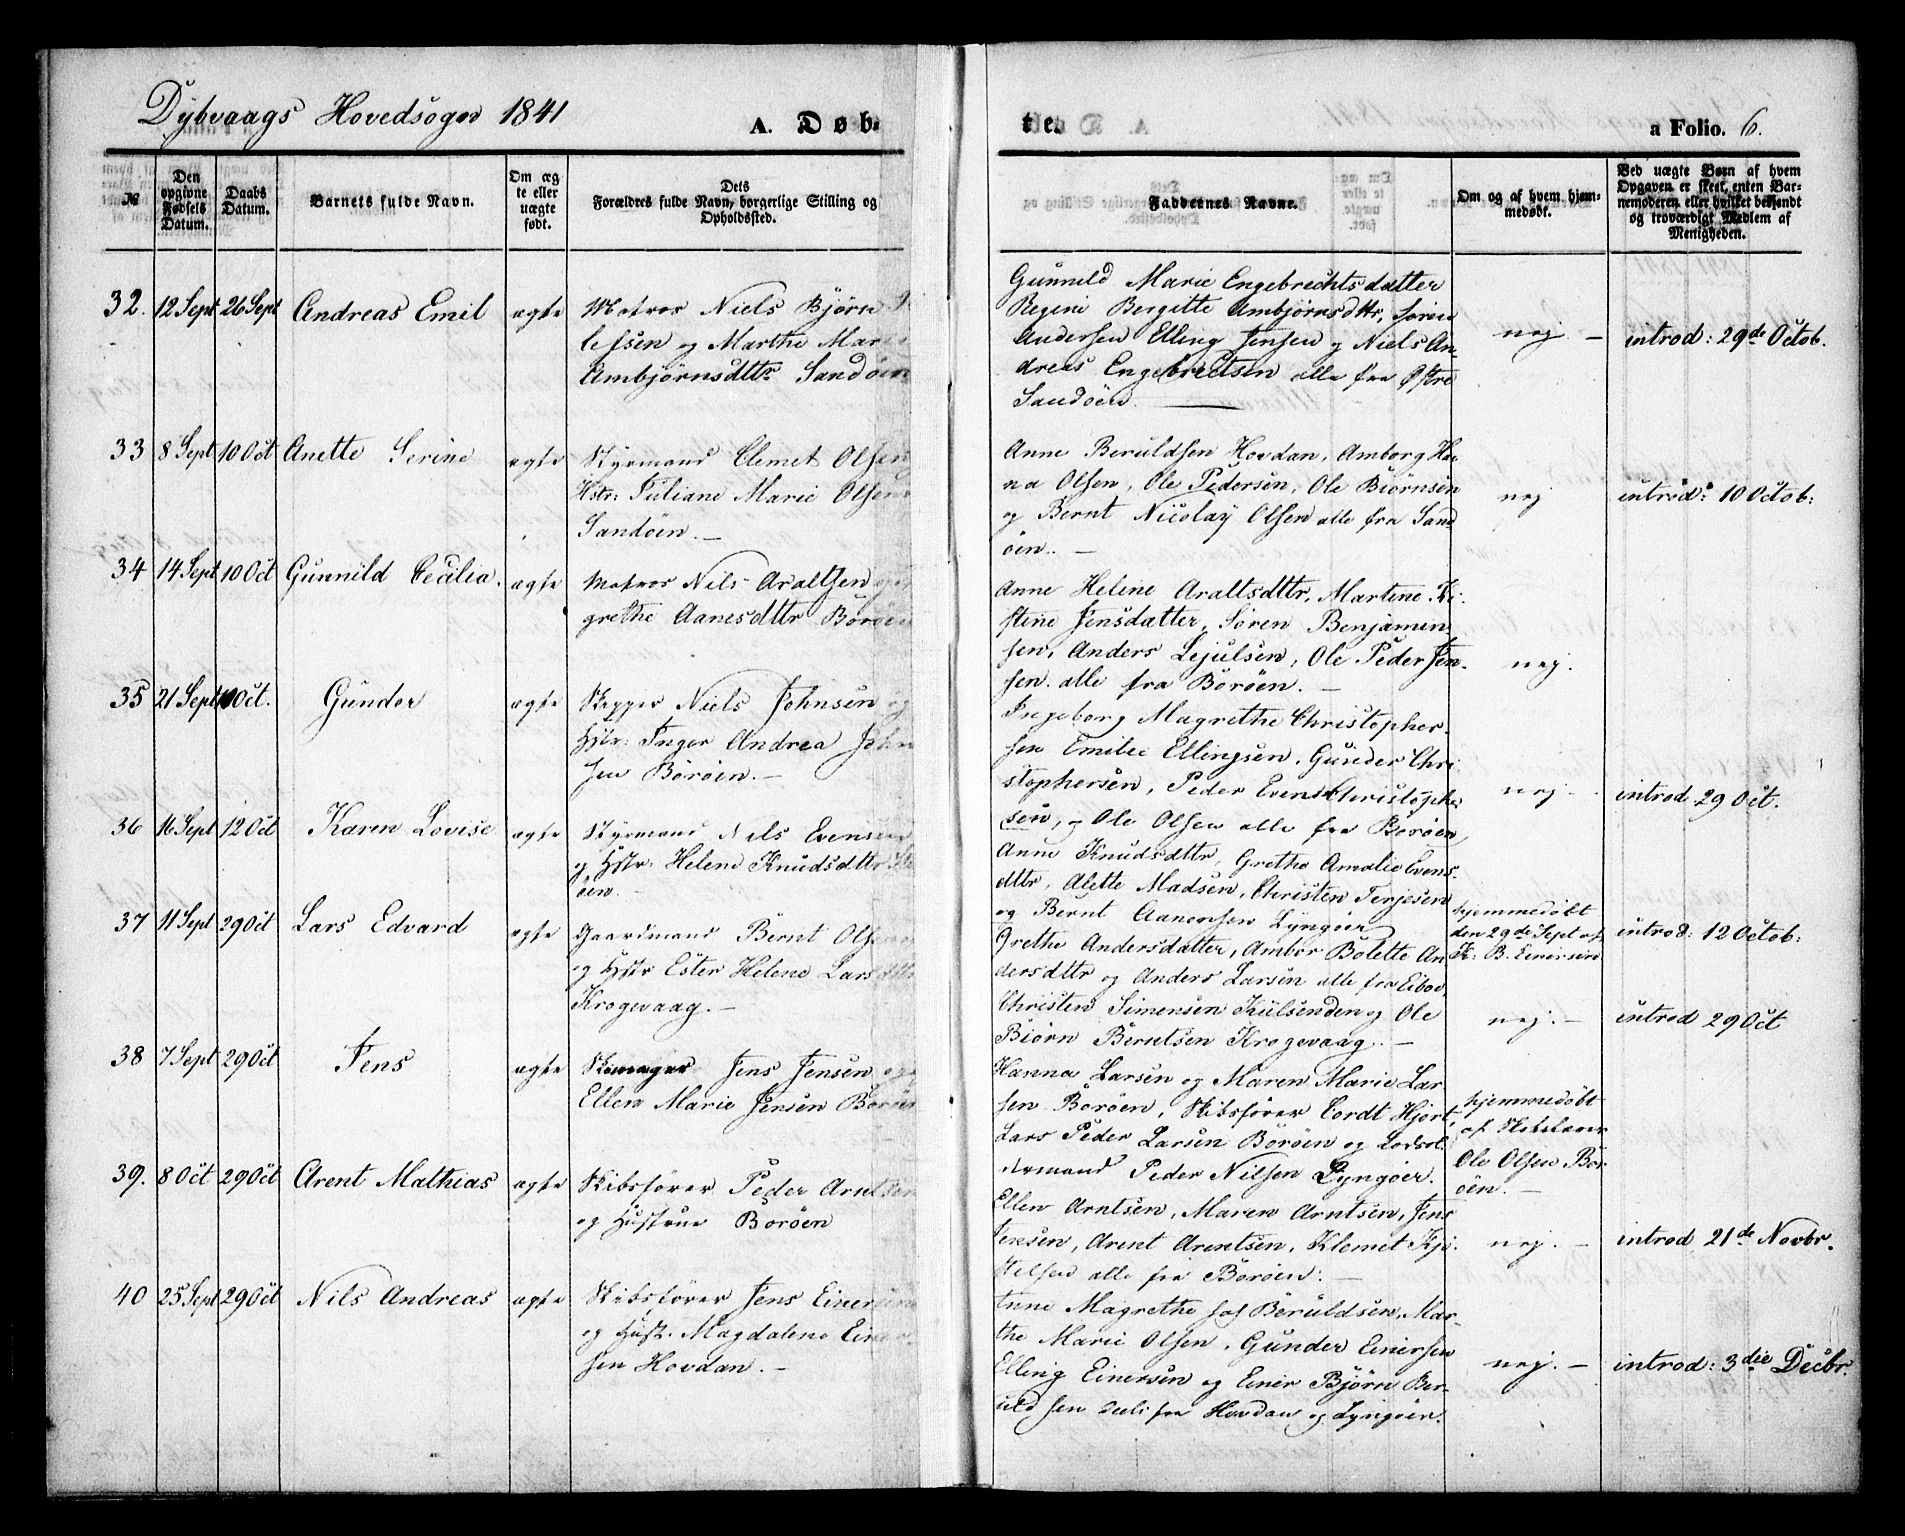 Dybvaags Hovedsogn 1841
A. Døb-
te.
a Folio. 6.
№
Den opgivne Fødsels Datum.
Daabs Datum.
Barnets fulde Navn.
Om æg te eller uægte født.
Dets Forældres fulde Navn, borgerlige Stilling og Opholdssted.
Faddernes Navne.
Om og af hvem hjemmedøbt.
Ved uægte Børn af hvem Opgaven er skeet, enten Barnemoderen eller hvilket bekjendt og troværdigt Medlem af Menigheden.
32. 12 Sept 26 Sept Andreas Emil ægte
Matros Niels Bjørn
lefsen og Marthe Marie
Ambjørnsdttr Sandøen
Gunnild Marie Engebrechtsdatter
Regine Bergitte Ambjørnsdttr, Søren
Andersen Elling Jensen og Niels An-
dreas Engebretsen alle fra Østre
Sandøen.
nej. —
introd: 29de Octob.
33 8 Sept 10 Oct Anette Serine ægte
Styrmand Clemet Olsen
Hstr: Juliane Marie Olsen
Sandøen. —
Anne Beruldsen Hovdan, Amborg Han-
na Olsen, Ole Pedersen, Ole Biørnsen
og Bernt Nicolay Olsen alle fra Sand
øen. —
nej
introd: 10 Octob:
34 14 Sept 10 Oct Gunnild Cecilia. ægte
Matros Nils Araltsen og
grethe Aanesdttr Borøen
Anne Helene Araltsdttr, Martine Ki-
stine Jensdatter, Søren Benjamin-
sen, Anders Lejulsen, Ole Peder Jen-
sen. alle fra Borøen. —
nej.
35 21 Sept 10 Oct. Gunder ægte
Skipper Niels Johnsen og
Hstr: Inger Andrea John
sen Borøen. —
Ingeborg Magrethe Christopher-
sen Emilie Ellingsen, Gunder Chri-
stophersen, Peder Evensen Christophe-
sen, og Ole Olsen alle fra Borøen,
nej. —
introd 29 Oct.
36 16 Sept 12 Oct Karen Lovise ægte
Styrmand Niels Evensen
og Hstr: Helene Knudsdttr
øen.
Anne Knudsdttr, Grethe Amalie Evens-
dttr, Alette Madsen, Christen Terjesen
og Bernt Aanensen Lyngøer
introd: 12 Octob:
37 11 Sept 29 Oct Lars Edvard ægte
Gaardmand Bernt Olsen
og Hstr Ester Helene Larsdttr
Krogevaag. —
hjemmedøbt
den 29de Sept af
K: B. Einersen
Grethe Andersdatter, Ambor Bolette An
dersdttr og Anders Larsen alle fra Eiboe,
Christen Simensen Kulsenden og Ole
Biørn Berntsen Krogevaag. —
nej. —
introd 29 Oct
38 7 Sept 29 Oct Jens ægte
Skomager Jens Jensen og
Ellen Marie Jensen Borøen
Hanna Larsen og Maren Marie Lar-
sen Borøen, Skibsfører Cordt Hjort,
Lars Peder Larsen Borøen og Lodsol-
dermand Peder Nilsen Lyngøer.
hjemmedøbt
af Skolelærer
Ole Olsen Bor
øen. —
39. 8 Oct 29 Oct Arent Mathias ægte
Skibsfører Peder Arntsen
og Hustrue Borøen
Ellen Arntsen, Maren Arntsen, Jens
Jensen, Arent Arentsen, Klemet Kje-
stelsen alle fra Borøen: —
nej. —
introd 21de Novbr.
40 25 Sept 29 Oct Nils Andreas ægte
Skibsfører Jens Einersen
og Hust. Magdalene Einer-
sen Hovdan. —
Anne Magrethe Beruldsen, Mar-
the Marie Olsen, Gunder Einersen
Elling Einersen og Einer Bjørn Ber-
uldsen fra Hovdan og Lyngøer.
nej. —
introd: 3die Decbr.